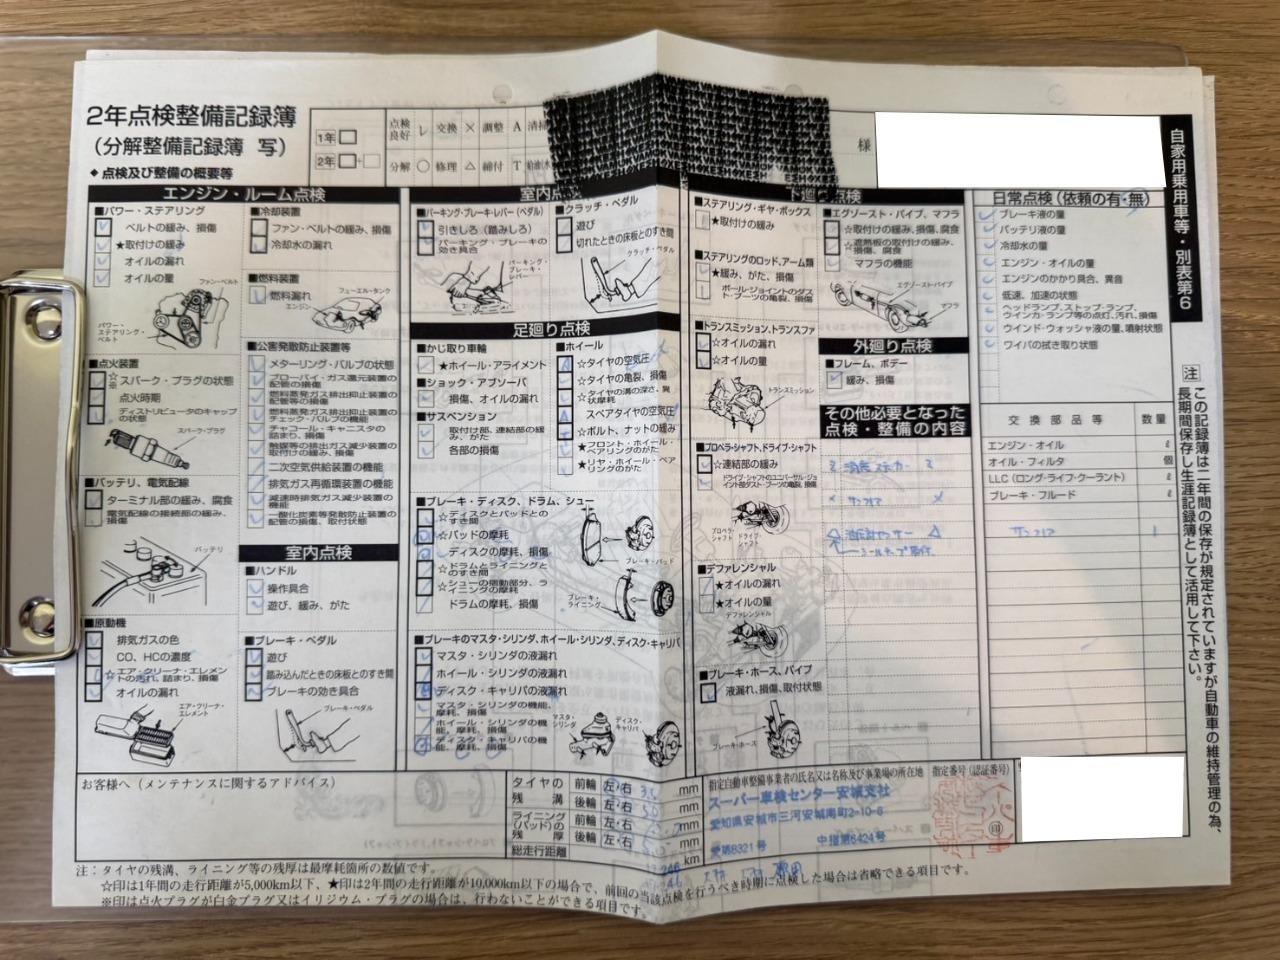 2年点検整備記録簿
(分解整備記録簿 写)
◆点検及び整備の概要等
1年
2年
点検良好 レ 交換 × 調整 A 清掃
分解 ○ 修理 △ 締付 T 給油
様
自家用乗用車等・別表第6
エンジン・ルーム点検
■パワー・ステアリング
ベルトの緩み、損傷
★取付けの緩み
オイルの漏れ
オイルの量
ファン・ベルト
パワー・ステアリング・ベルト
■点火装置
☆スパーク・プラグの状態
点火時期
ディストリビュータのキャップの状態
スパーク・プラグ
■バッテリ、電気配線
ターミナル部の緩み、腐食
電気配線の接続部の緩み、損傷
バッテリ
■原動機
排気ガスの色
CO、HCの濃度
☆エア・クリーナ・エレメントの汚れ、詰まり、損傷
オイルの漏れ
エア・クリーナ・エレメント
■冷却装置
ファン・ベルトの緩み、損傷
冷却水の漏れ
■燃料装置
燃料漏れ
フューエル・タンク
エンジン
■公害発散防止装置等
メターリング・バルブの状態
ブローバイ・ガス還元装置の配管の損傷
燃料蒸発ガス排出抑止装置の配管等の損傷
燃料蒸発ガス排出抑止装置のチェック・バルブの機能
チャコール・キャニスタの詰まり、損傷
触媒等の排出ガス減少装置の取付けの緩み、損傷
二次空気供給装置の機能
排気ガス再循環装置の機能
減速時排気ガス減少装置の機能
一酸化炭素等発散防止装置の配管の損傷、取付状態
室内点検
■ハンドル
操作具合
遊び、緩み、がた
■ブレーキ・ペダル
遊び
踏み込んだときの床板とのすき間
ブレーキの効き具合
ブレーキ・ペダル
室内点
■パーキング・ブレーキ・レバー(ペダル)
引きしろ(踏みしろ)
パーキング・ブレーキの効き具合
パーキング・ブレーキ・レバー
■クラッチ・ペダル
遊び
切れたときの床板とのすき間
クラッチ・ペダル
足廻り点検
■かじ取り車輪
★ホイール・アライメント
■ショック・アブソーバ
損傷、オイルの漏れ
■サスペンション
取付部、連結部の緩み、がた
各部の損傷
■ホイール
☆タイヤの空気圧
☆タイヤの亀裂、損傷
☆タイヤの溝の深さ、異状摩耗
スペアタイヤの空気圧
☆ボルト、ナットの緩み
★フロント・ホイール・ベアリングのがた
★リヤ・ホイール・ベアリングのがた
■ブレーキ・ディスク、ドラム、シュー
☆ディスクとパッドとのすき間
☆パッドの摩耗
ディスクの摩耗、損傷
☆ドラムとライニングとのすき間
☆シューの摺動部分、ライニングの摩耗
ドラムの摩耗、損傷
ブレーキ・パッド
ブレーキ・ライニング
■ブレーキのマスタ・シリンダ、ホイール・シリンダ、ディスク・キャリパ
マスタ・シリンダの液漏れ
ホイール・シリンダの液漏れ
ディスク・キャリパの液漏れ
マスタ・シリンダの機能、摩耗、損傷
ホイール・シリンダの機能、摩耗、損傷
ディスク・キャリパの機能、摩耗、損傷
マスタ・シリンダ
ディスク・キャリパ
下廻り点検
■ステアリング・ギヤ・ボックス
★取付けの緩み
■ステアリングのロッド、アーム類
★緩み、がた、損傷
ボール・ジョイントのダスト・ブーツの亀裂、損傷
■トランスミッション、トランスファ
☆オイルの漏れ
☆オイルの量
トランスミッション
■プロペラ・シャフト、ドライブ・シャフト
☆連結部の緩み
ドライブ・シャフトのユニバーサル・ジョイント部ダスト・ブーツの亀裂、損傷
プロペラ・シャフト
ドライブ・シャフト
■デファレンシャル
★オイルの漏れ
★オイルの量
デファレンシャル
■ブレーキ・ホース、パイプ
液漏れ、損傷、取付状態
ブレーキ・ホース
■エグゾースト・パイプ、マフラ
☆取付けの緩み、損傷、腐食
☆遮熱板の取付けの緩み、損傷、腐食
マフラの機能
エグゾーストパイプ
マフラ
外廻り点検
■フレーム、ボデー
緩み、損傷
その他必要となった点検・整備の内容
日常点検(依頼の有・無)
ブレーキ液の量
バッテリ液の量
冷却水の量
エンジン・オイルの量
エンジンのかかり具合、異音
低速、加速の状態
ヘッドランプ、ストップ・ランプ、ウインカ・ランプ等の点灯、汚れ、損傷
ウインド・ウォッシャ液の量、噴射状態
ワイパの拭き取り状態
交換部品等 数量
エンジン・オイル ℓ
オイル・フィルタ 個
LLC(ロング・ライフ・クーラント) ℓ
ブレーキ・フルード ℓ
注 この記録簿は二年間の保存が規定されていますが自動車の維持管理の為、長期間保存し生涯記録簿として活用して下さい。
お客様へ(メンテナンスに関するアドバイス)
タイヤの残溝 前輪 左・右 mm
後輪 左・右 mm
ライニング(パッド)の残厚 前輪 左・右 mm
後輪 左・右 mm
総走行距離 km
指定自動車整備事業者の氏名又は名称及び事業場の所在地
スーパー車検センター安城支社
愛知県安城市三河安城南町2-10-6
愛第8321号 中指第6424号
指定番号(認証番号)
印
注:タイヤの残溝、ライニング等の残厚は最摩耗箇所の数値です。
☆印は1年間の走行距離が5,000km以下、★印は2年間の走行距離が10,000km以下の場合で、前回の当該点検を行うべき時期に点検した場合は省略できる項目です。
※印は点火プラグが白金プラグ又はイリジウム・プラグの場合は、行わないことができる項目です。